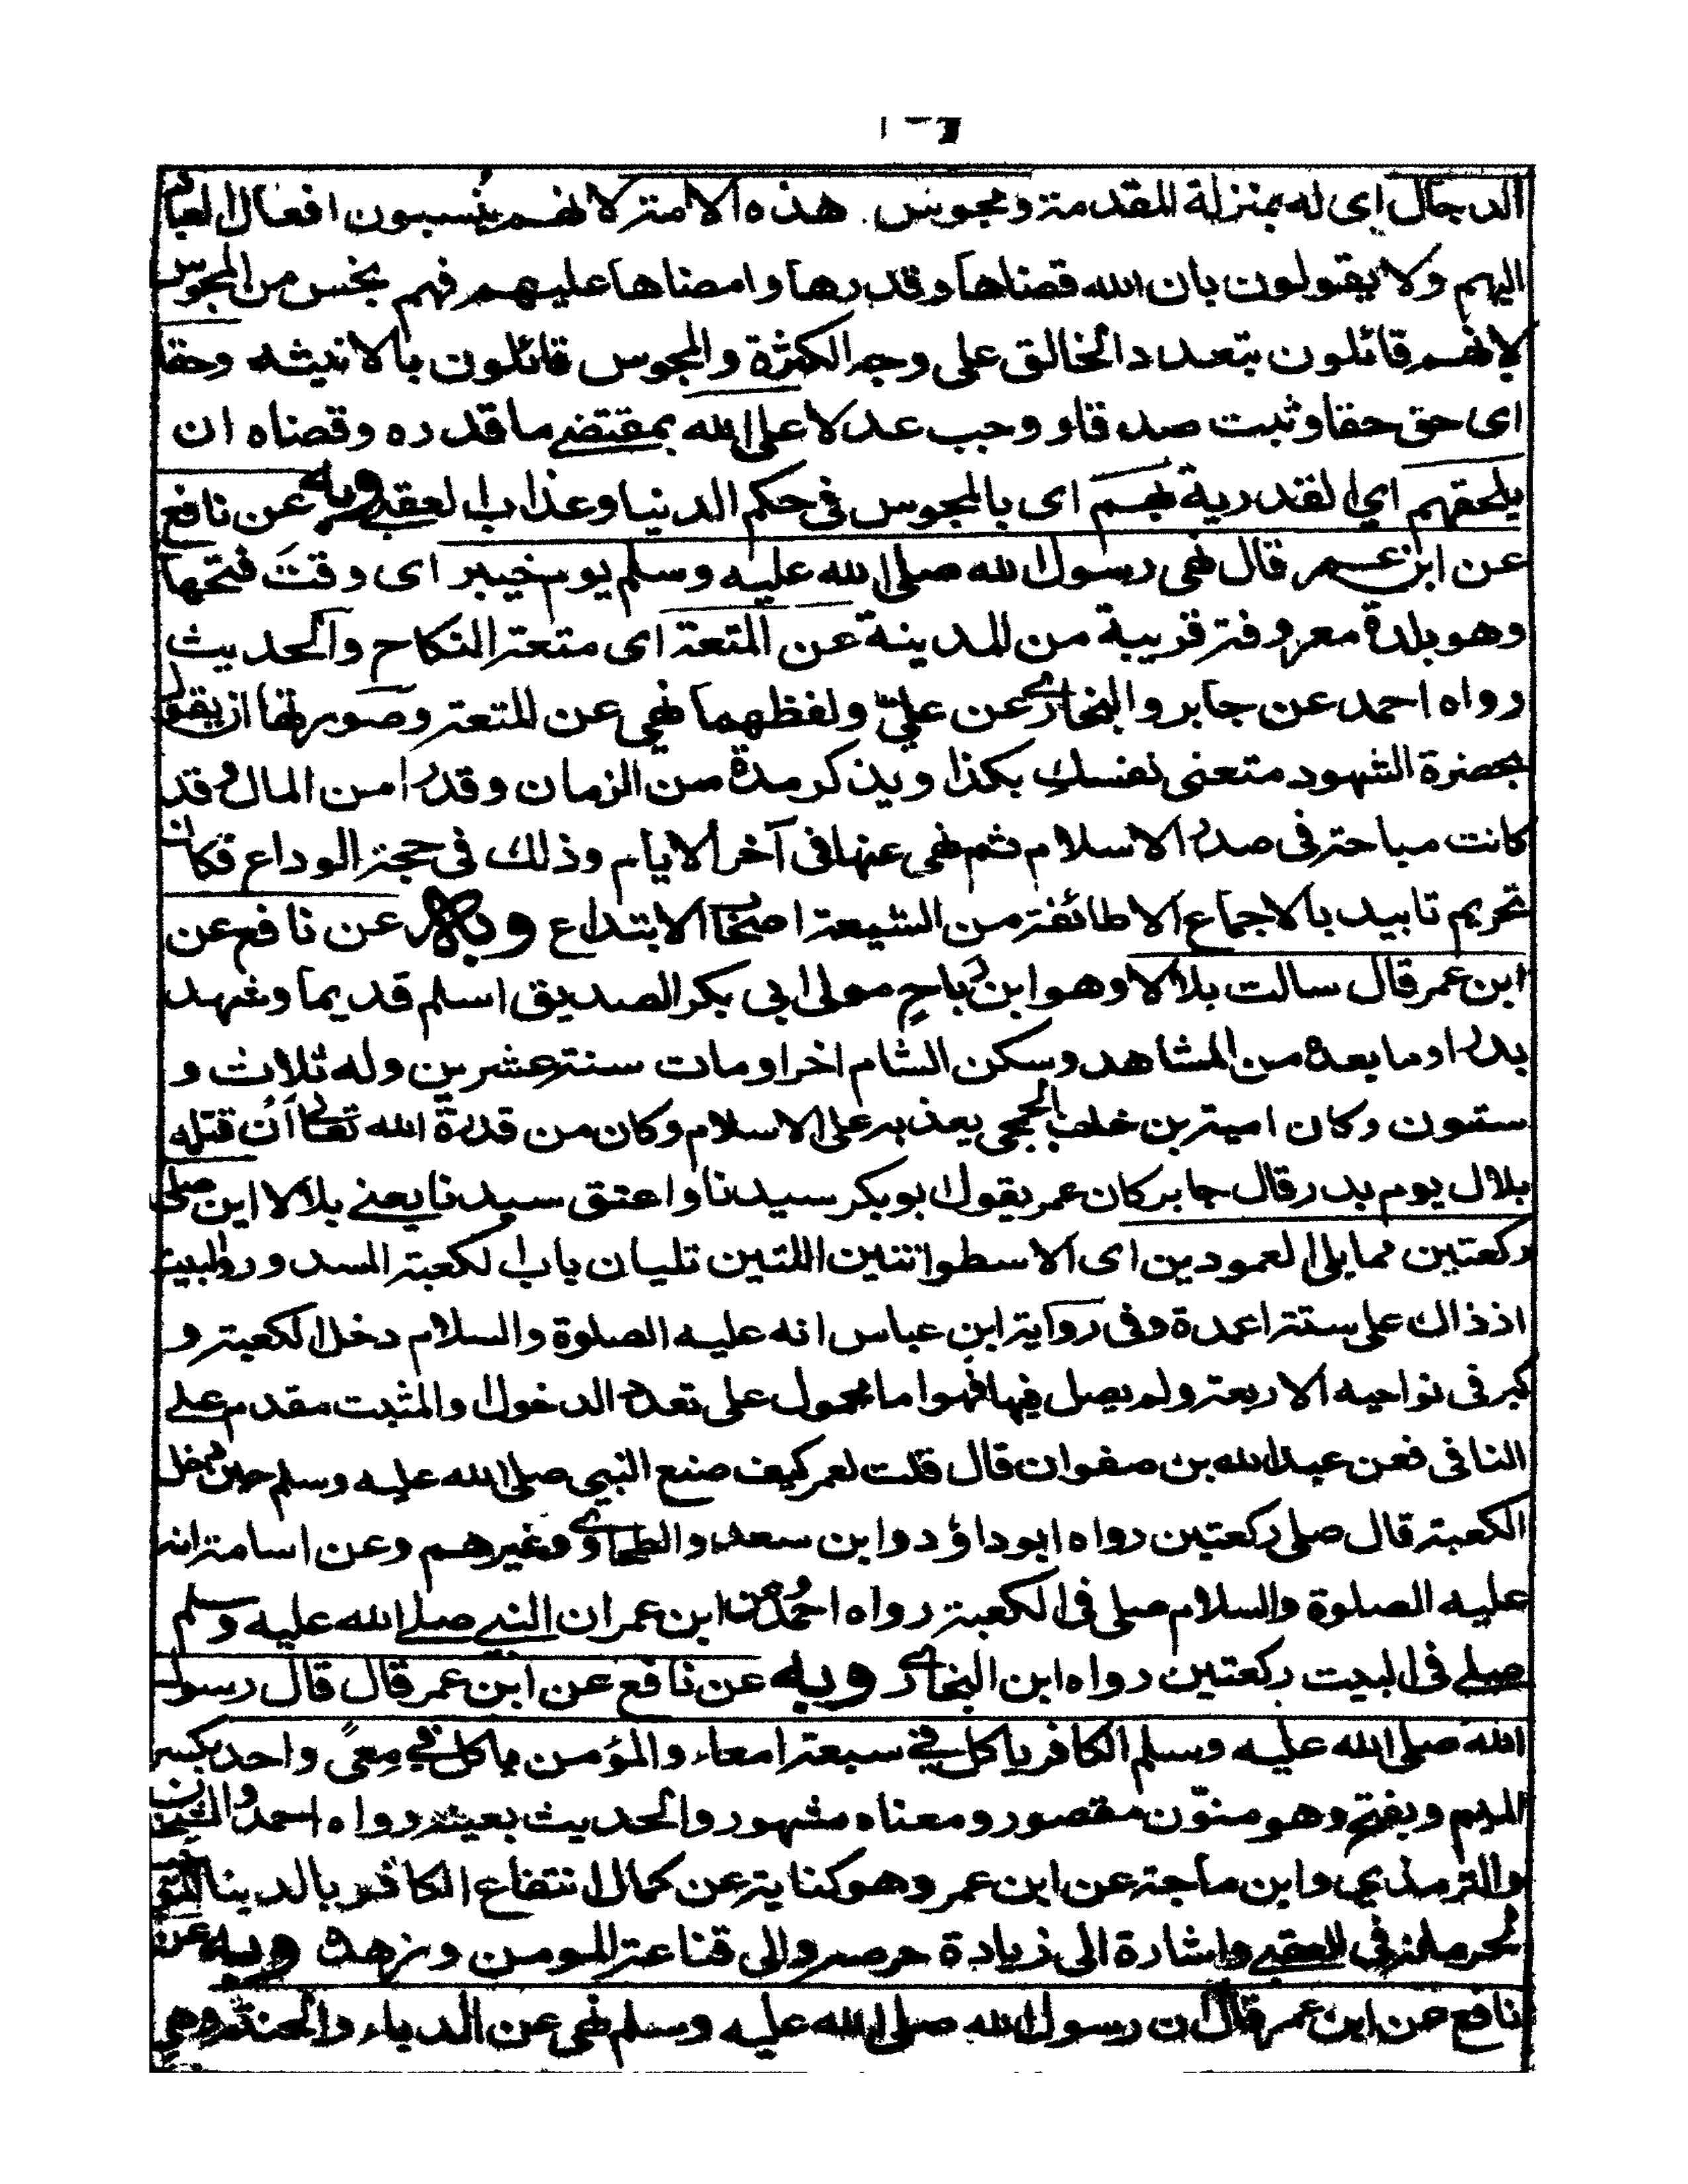 الدجال اى له بمنزلة المقدمة ومجوس هذه الامة لانهم ينسبون افعال العباد
اليهم ولا يقولون بان الله قضاها وقدرها وامضاها عليهم فهم بخس من المجوس
لانهم قائلون بتعدد الخالق على وجه الكثرة والمجوس قائلون بالاثنيثه وحقا
اى حق حقا وثبت صدقا و وجب عدلا على الله بمقتضے ما قدره وقضاه ان
يلحقهم اي القدرية بهم اى بالمجوس فى حكم الدنيا وعذاب العقبے وبه عن نافع
عن ابن عمر قال نهى رسول الله صلى الله عليه وسلم يوم خيبر اى وقت فتحها
وهو بلدة معروفة قريبة من المدينة عن المتعة اى متعة النكاح والحديث
رواه احمد عن جابر والبخارے عن علىّ ولفظهما نهى عن المتعة وصورتها ان يقول
بحضرة الشهود متعنى نفسكِ بكذا ويذكر مدة من الزمان وقدرا من المال وقد
كانت مباحة فى صدر الاسلام ثم نهى عنها فى آخر الايام وذلك فى حجة الوداع فكان
تحريم تابيد بالاجماع الا طائفة من الشيعة اصحاب الابتداع وبه عن نافع عن
ابن عمر قال سالت بلالا وهو ابن رباح مولى ابى بكر الصديق اسلم قديما وشهد
بدرا وما بعده من المشاهد وسكن الشام اخرا ومات سنة عشرين وله ثلاث و
ستون وكان امية بن خلف الجمحى يعذبه على الاسلام وكان من قدرة الله تعالى ان قتله
بلال يوم بدر قال جابر كان عمر يقول ابو بكر سيدنا واعتق سيدنا يعنے بلالا اين صلى
ركعتين مما يلى العمودين اى الاسطوانتين اللتين تليان باب الكعبة المسدور والبيت
اذ ذاك على ستة اعمدة وفى رواية ابن عباس انه عليه الصلوة والسلام دخل الكعبة و
كبر فى نواحيه الاربعة ولم يصل فيها فهو اما محمول على تعدد الدخول والمثبت مقدم علے
النافى فعن عبد الله بن صفوان قال قلت لعمر كيف صنع النبى صلى الله عليه وسلم حين دخل
الكعبة قال صلى ركعتين رواه ابو داؤد وابن سعد والطحاوے وغيرهم وعن اسامة انه
عليه الصلوة والسلام صلى فى الكعبة رواه احمد وعن ابن عمر ان النبے صلے الله عليه وسلم
صلے فى البيت ركعتين رواه ابن النجارے وبه عن نافع عن ابن عمر قال قال رسول
الله صلى الله عليه وسلم الكافر ياكل فے سبعة امعاء والمؤمن ياكل فے مِعىً واحد بكسر
الميم ويفتح وهو منوّن مقصور ومعناه مشهور والحديث بعينه رواه احمد والشيخان
والترمذي وابن ماجة عن ابن عمر وهو كناية عن كمال انتفاع الكافر بالدنيا
فى العقبے واشارة الى زيادة حرصه والى قناعة المومن وزهده وبه عن
نافع عن ابن عمر قال ان رسول الله صلى الله عليه وسلم نهى عن الدباء والحنتم وهى